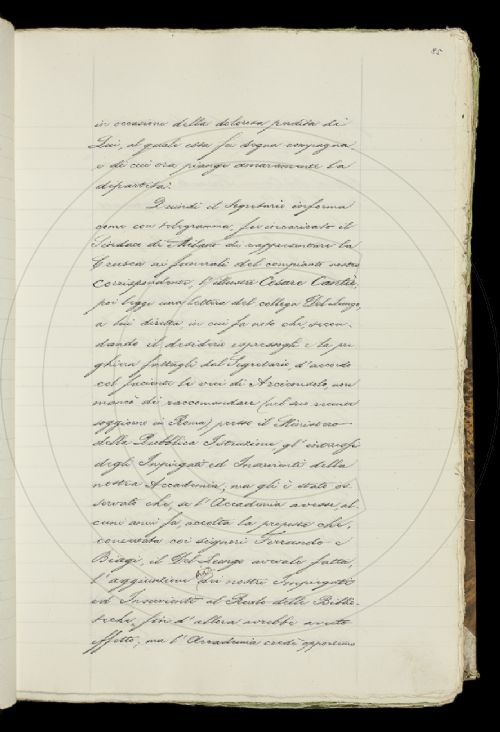 85
in occasione della dolorosa perdita di
Lui, al quale essa fu degna compagna
e di cui ora piange amaramente la
dipartita.
Quindi il Segretario informa
come con telegramma, fu incaricato il
Sindaco di Milano di rappresentare la
Crusca ai funerali del compianto nostro
Corrispondente, l'illustre Cesare Cantù,
poi legge una lettera del collega Del Lungo,
a lui diretta in cui fa noto che, secon-
dando il desiderio espressogli e la pre
ghiera fattagli dal Segretario, d'accordo
col facente le veci di Arciconsolo, non
mancò di raccomandare (nel suo recente
soggiorno in Roma) presso il Ministero
della Pubblica Istruzione gl'interessi
degli Impiegati ed Inservienti della
nostra Accademia; ma gli è stato os
servato che, se l'Accademia avesse, al
cuni anni fa, accolta la proposta che,
concertata coi signori Ferrando e
Biagi, il Del Lungo aveale fatta,
l'aggiunzione dei nostri Impiegati
ed Inservienti al Ruolo delle Biblio-
teche, fin d'allora avrebbe avuto
effetto; ma l'Accademia credè opportuno